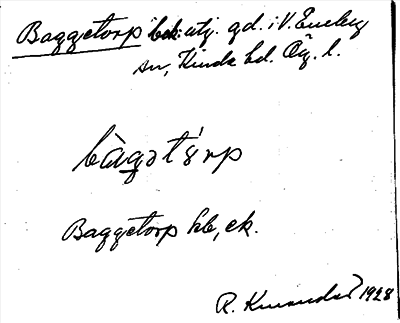 Baggetorp utj. gd. i V. Eneby
sn, Kinda hd. Ög. l.
bàgət ́ɤrp
Baggetorp hb, ek.
R. 1928